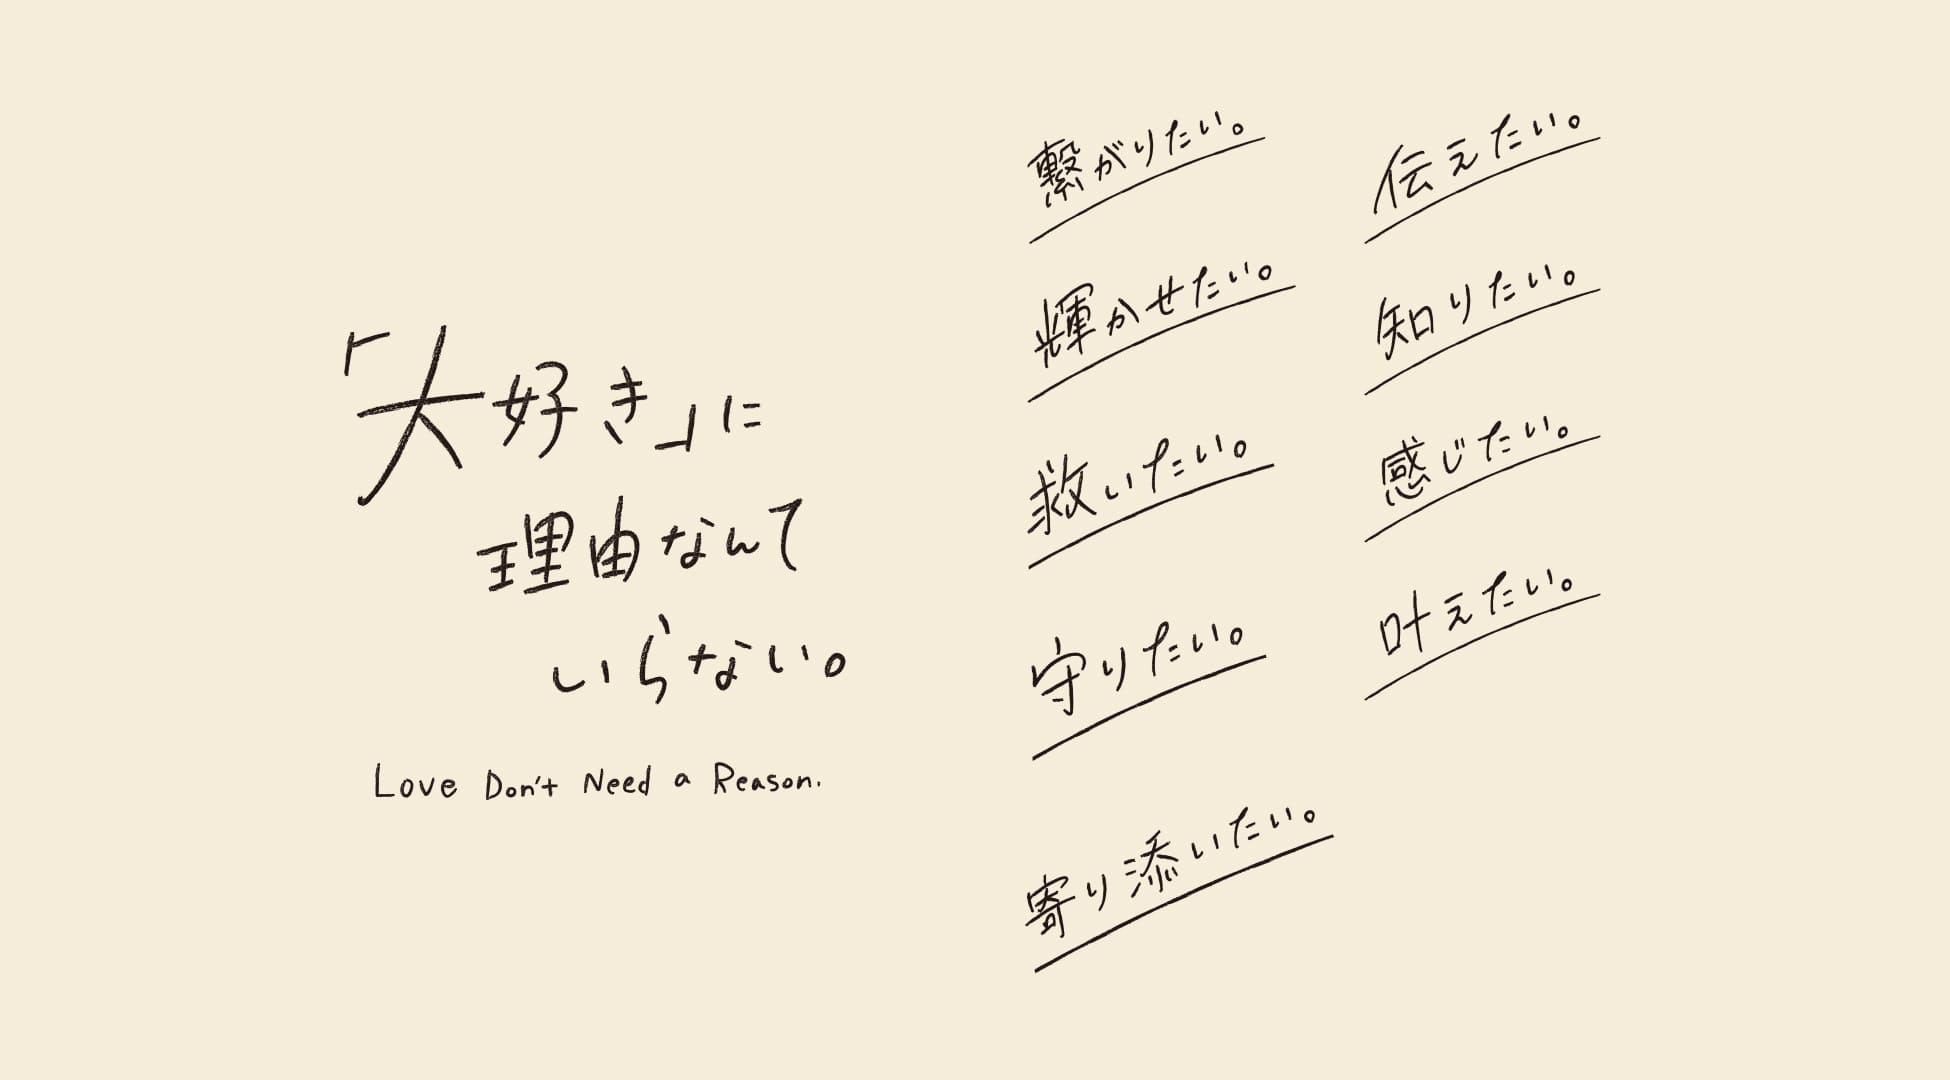 「大好き」に
理由なんて
いらない。
Love Don't Need a Reason.
繋がりたい。
輝かせたい。
救いたい。
守りたい。
寄り添いたい。
伝えたい。
知りたい。
感じたい。
叶えたい。